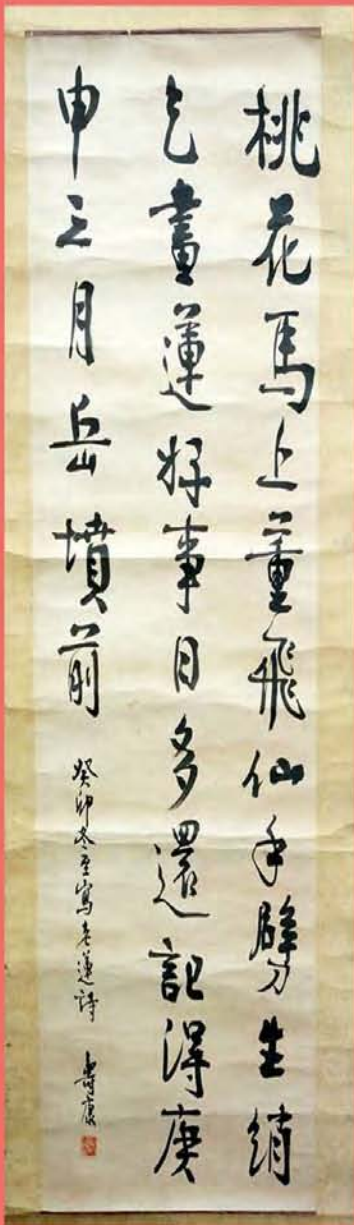 桃花馬上董飛仙手劈生綃
乞畫蓮好事日多還記得庚
申三月岳墳前
癸卯冬至寫老蓮詩 壽康